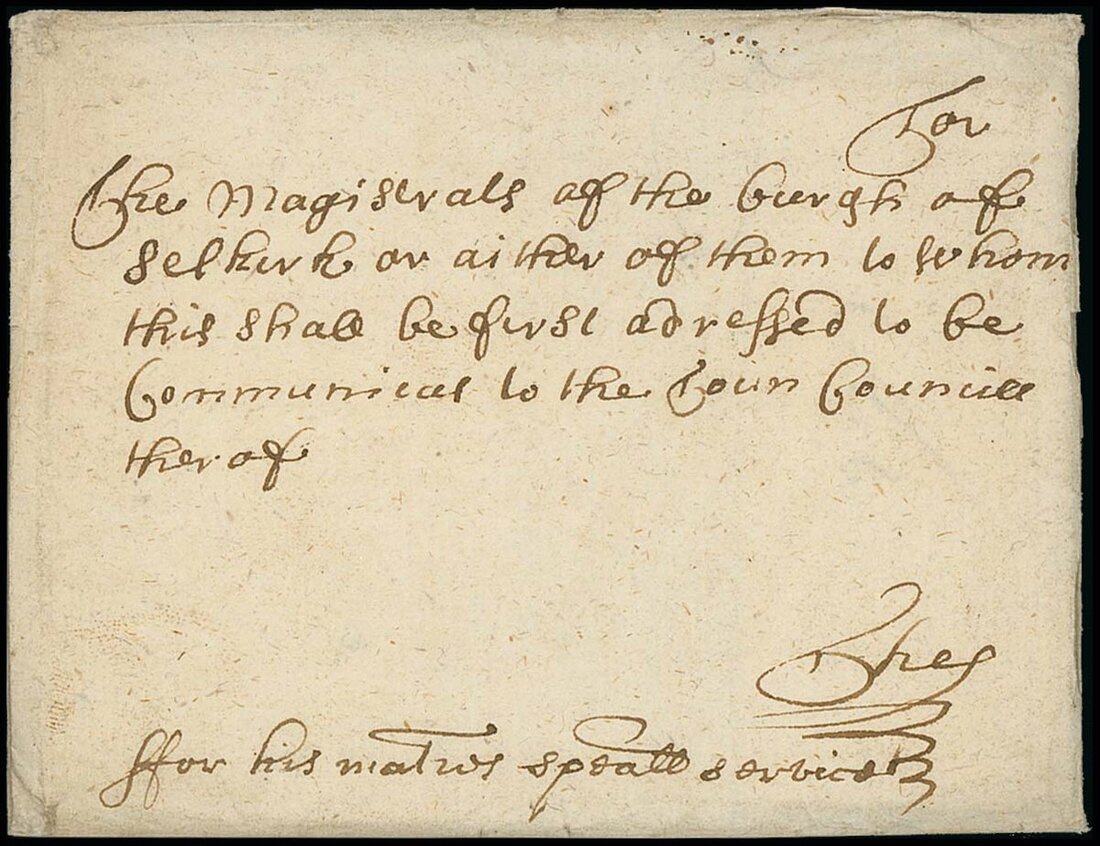 For
The Magistrats off the burgh off
Selkirk or aither off them to whom
this shall be first adressed to be
Communicat to the Toun Councill
theroff
Thes
ffor his maties speall service